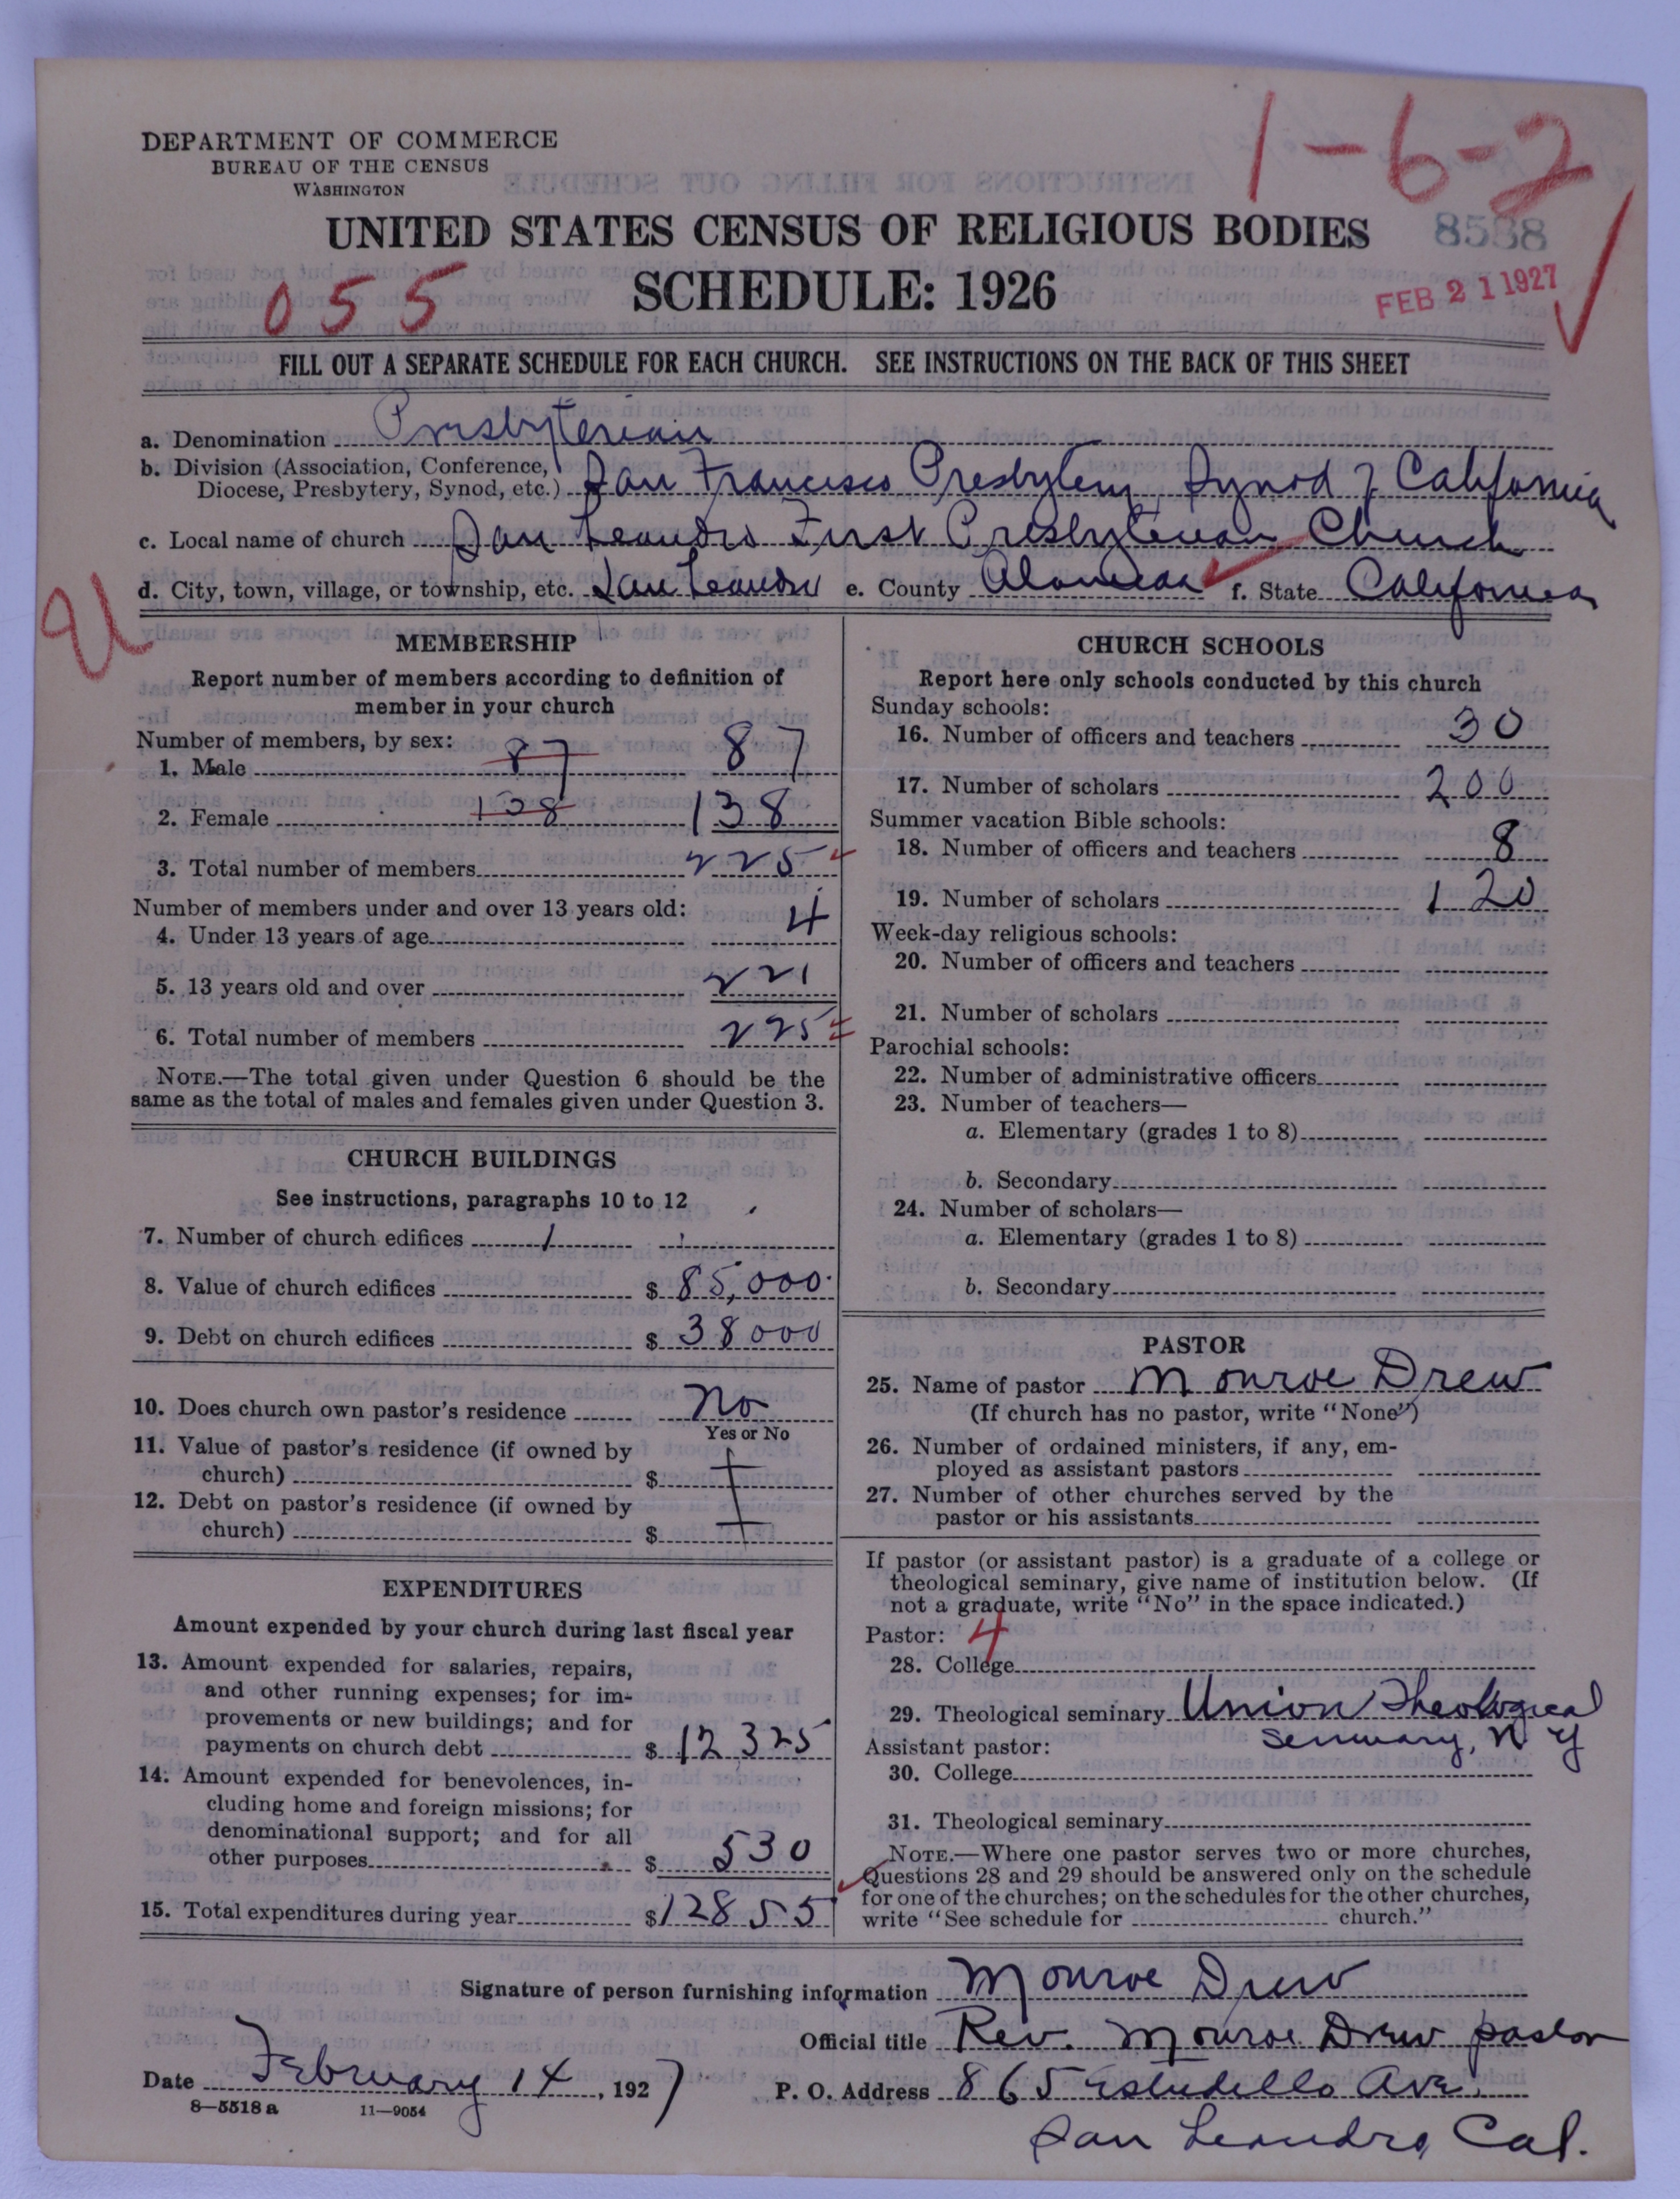 1-6-2
DEPARTMENT OF COMMERCE
BUREAU OF THE CENSUS
WASHINGTON
UNITED STATES CENSUS OF RELIGIOUS BODIES
8538
SCHEDULE: 1926
055
FEB 21 1927
FILL OUT A SEPARATE SCHEDULE FOR EACH CHURCH. SEE INSTRUCTIONS ON THE BACK OF THIS SHEET
a. Denomination Presbyterian
b. Division (Association, Conference,
Diocese, Presbytery, Synod, etc.) San Francisco Presbytery, Synod of California
c. Local name of church San Leandro First Presbyterian Church
d. City, town, village, or township, etc. San Leandro e. County Alameda f. State California
MEMBERSHIP
Report number of members according to definition of
member in your church
Number of members, by sex:
1. Male 87 87
2. Female 138 138
3. Total number of members 225
Number of members under and over 13 years old:
4. Under 13 years of age 4
5. 13 years old and over 221
6. Total number of members 225
NOTE.—The total given under Question 6 should be the
same as the total of males and females given under Question 3.
CHURCH BUILDINGS
See instructions, paragraphs 10 to 12
7. Number of church edifices 1
8. Value of church edifices $ 85,000
9. Debt on church edifices $ 38000
10. Does church own pastor's residence No
Yes or No
11. Value of pastor's residence (if owned by
church) $
12. Debt on pastor's residence (if owned by
church) $
EXPENDITURES
Amount expended by your church during last fiscal year
13. Amount expended for salaries, repairs,
and other running expenses; for im-
provements or new buildings; and for
payments on church debt $ 12325
14. Amount expended for benevolences, in-
cluding home and foreign missions; for
denominational support; and for all
other purposes $ 530
15. Total expenditures during year $12855
CHURCH SCHOOLS
Report here only schools conducted by this church
Sunday schools:
16. Number of officers and teachers 30
17. Number of scholars 200
Summer vacation Bible schools:
18. Number of officers and teachers 8
19. Number of scholars 120
Week-day religious schools:
20. Number of officers and teachers
21. Number of scholars
Parochial schools:
22. Number of administrative officers
23. Number of teachers—
a. Elementary (grades 1 to 8)
b. Secondary
24. Number of scholars—
a. Elementary (grades 1 to 8)
b. Secondary
PASTOR
25. Name of pastor Monroe Drew
(If church has no pastor, write "None")
26. Number of ordained ministers, if any, em-
ployed as assistant pastors
27. Number of other churches served by the
pastor or his assistants
If pastor (or assistant pastor) is a graduate of a college or
theological seminary, give name of institution below. (If
not a graduate, write "No" in the space indicated.)
Pastor: 4
28. College
29. Theological seminary Union Theological
Seminary, N Y
Assistant pastor:
30. College
31. Theological seminary
NOTE.—Where one pastor serves two or more churches,
Questions 28 and 29 should be answered only on the schedule
for one of the churches; on the schedules for the other churches,
write "See schedule for church."
Signature of person furnishing information Monroe Drew
Official title Rev. Monroe Drew pastor
Date February 14, 1927
P. O. Address 865 Estudillo Ave.
San Leandro, Cal.
8—5518 a 11—9054